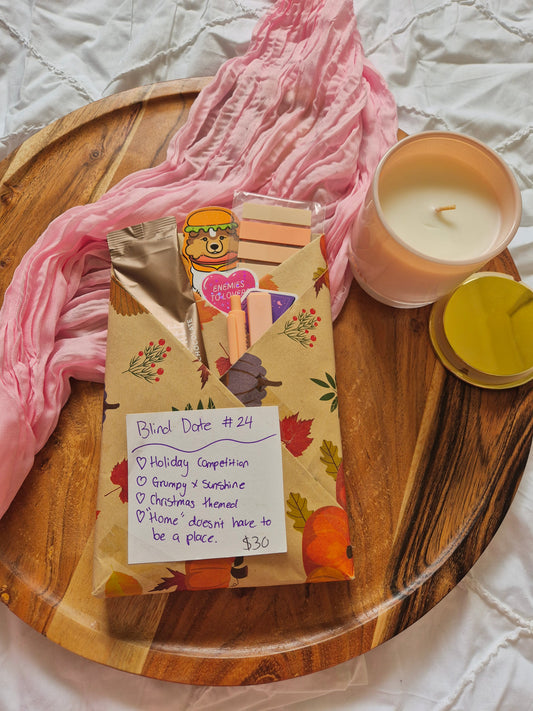 ENEMIES
TO LOVERS
Blind Date #24
♡ Holiday Competition
♡ Grumpy x Sunshine
♡ Christmas themed
♡ "Home" doesn't have to
be a place.
$30